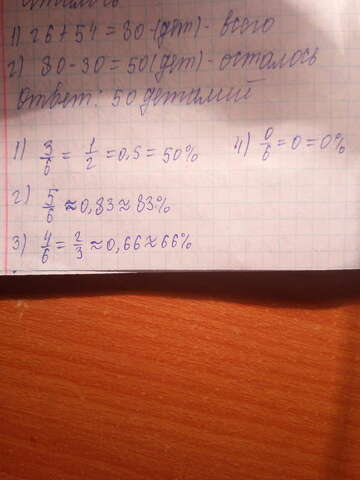 осталось
1) 26 + 54 = 80 (дет) - всего
2) 80 - 30 = 50 (дет) - осталось
Ответ: 50 деталий
1) 3/6 = 1/2 = 0,5 = 50% 4) 0/6 = 0 = 0%
2) 5/6 ≈ 0,83 ≈ 83%
3) 4/6 = 2/3 ≈ 0,66 ≈ 66%